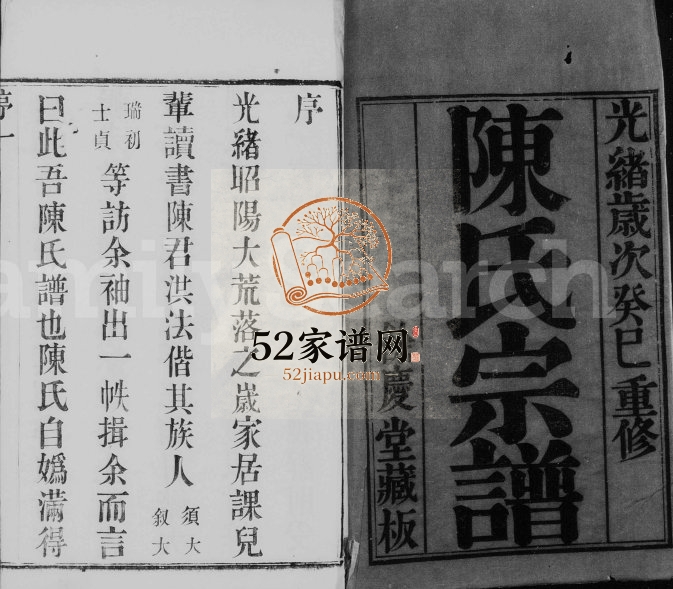 光緒歲次癸巳重修
陳氏宗譜
慶堂藏板
序
光緒昭陽大荒落之歲家居課兒
輩讀書陳君洪法偕其族人
須大
叙大
瑞初
士貞
等訪余袖出一帙揖余而言
曰此吾陳氏譜也陳氏自媯滿得
序一
52家谱网
52jiapu.com